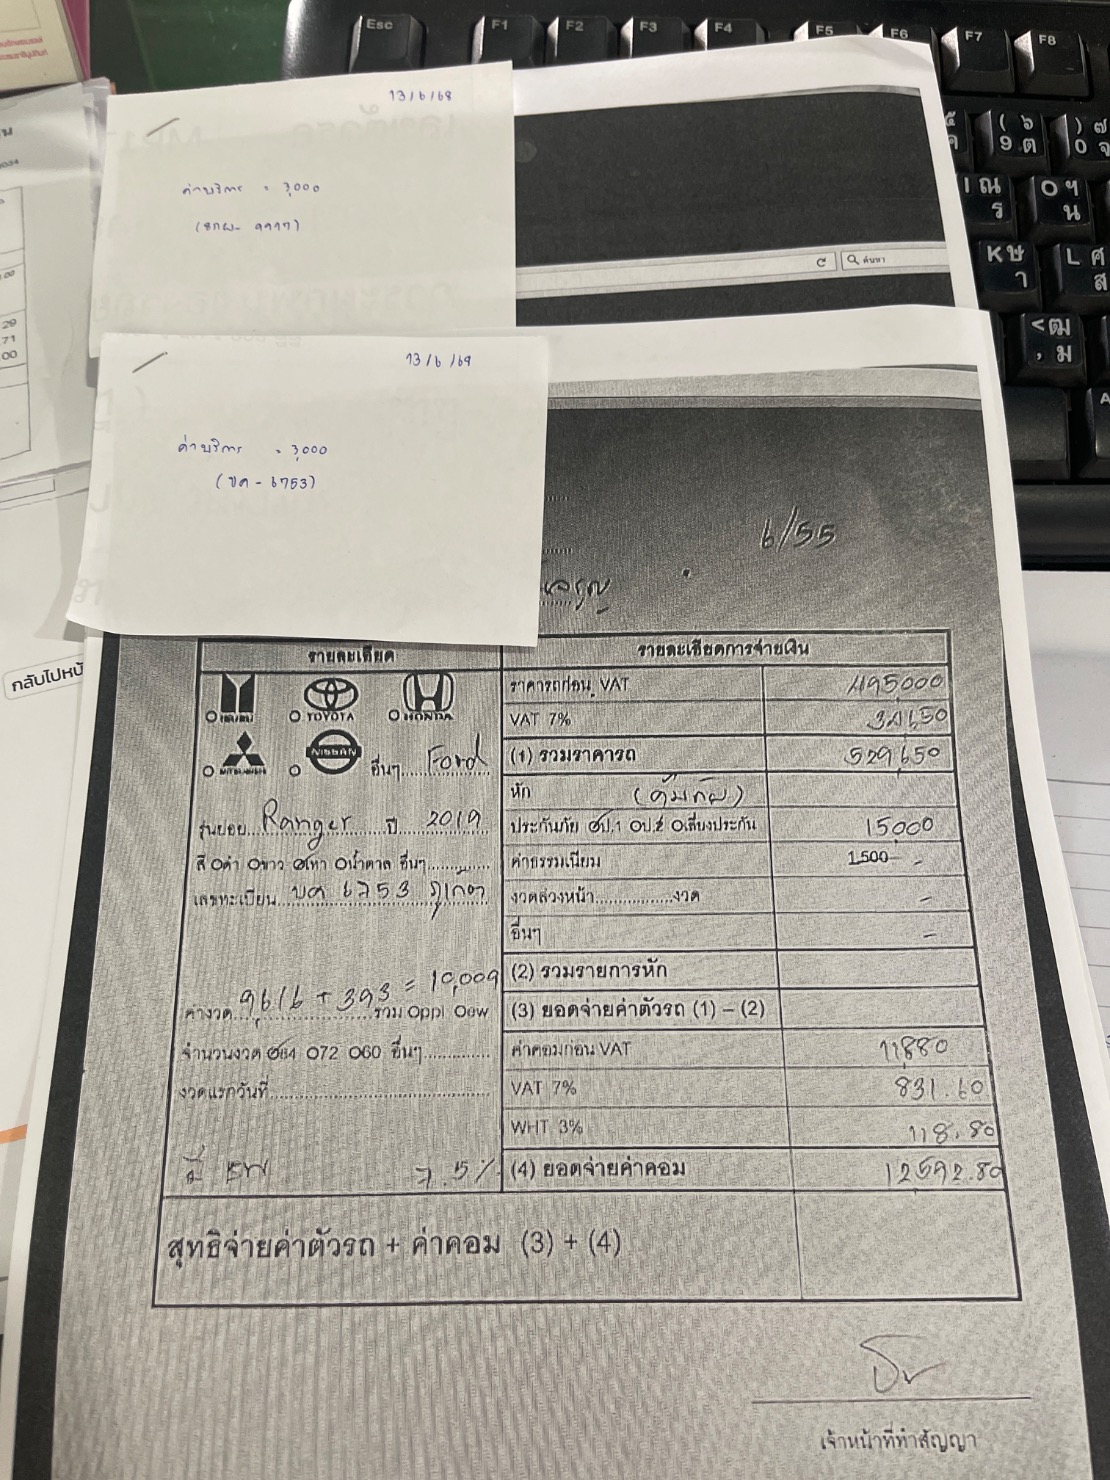 Esc F1 F2 F3 F4 F5 F6 F7 F8
13/6/68
ค่าบริการ = 3,000
ค้นหา
13/6/68
ค่าบริการ = 3,000
(ขค - 6753)
6/55
เจริญ
กลับไปหน้
รายละเอียด
รายละเอียดการจ่ายเงิน
ISUZU TOYOTA HONDA
MITSUBISHI NISSAN อื่นๆ Ford
รุ่นย่อย Ranger ปี 2019
สี Oดำ Oขาว Oเทา Oน้ำตาล อื่นๆ
เลขทะเบียน ขค 6753 ภูเก็ต
ค่างวด 9,616 + 393 = 10,009 รวม Oppl Oew
จำนวนงวด O84 O72 O60 อื่นๆ
งวดแรกวันที่
มี EW 7.5%
ราคารถก่อน VAT 495,000
VAT 7% 34,650
(1) รวมราคารถ 529,650
หัก (คุ้มภัย)
ประกันภัย Oป.1 Oป.2 Oเสี่ยงประกัน 15000
ค่าธรรมเนียม 1,500 -
งวดล่วงหน้า งวด -
อื่นๆ -
(2) รวมรายการหัก
(3) ยอดจ่ายค่าตัวรถ (1) – (2)
ค่าคอมก่อน VAT 11880
VAT 7% 831.60
WHT 3% 118.80
(4) ยอดจ่ายค่าคอม 12592.80
สุทธิจ่ายค่าตัวรถ + ค่าคอม (3) + (4)
เจ้าหน้าที่ทำสัญญา